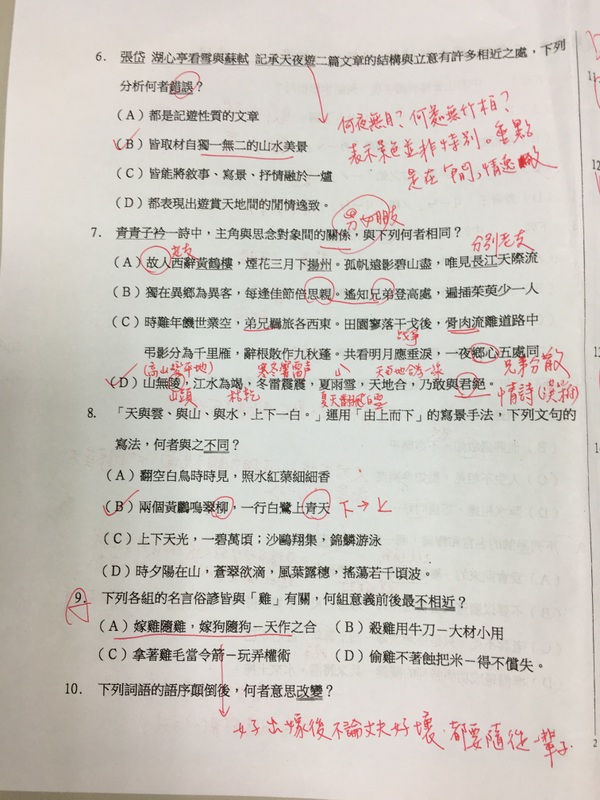 6. 張岱 湖心亭看雪與蘇軾 記承天夜遊二篇文章的結構與立意有許多相近之處，下列
分析何者錯誤？
(A) 都是記遊性質的文章
(B) 皆取材自獨一無二的山水美景
(C) 皆能將敘事、寫景、抒情融於一爐
(D) 都表現出遊賞天地間的閒情逸致。
何夜無月？何處無竹柏？
表示景色並非特別。重點
是在 閒情逸致
男女
7. 青青子衿一詩中，主角與思念對象間的關係，與下列何者相同？
老友
分別老友
(A) 故人西辭黃鶴樓，煙花三月下揚州。孤帆遠影碧山盡，唯見長江天際流
(B) 獨在異鄉為異客，每逢佳節倍思親。遙知兄弟登高處，遍插茱萸少一人
(C) 時難年饑世業空，弟兄羈旅各西東。田園寥落干戈後，骨肉流離道路中
戰爭
弔影分為千里雁，辭根散作九秋蓬。共看明月應垂淚，一夜鄉心五處同
兄弟分散
(高山變平地)
寒冬響雷聲
天地合為一體
(D) 山無陵，江水為竭，冬雷震震，夏雨雪，天地合，乃敢與君絕。
山頭
枯乾
情詩
8. 「天與雲、與山、與水，上下一白。」運用「由上而下」的寫景手法，下列文句的
寫法，何者與之不同？
(A) 翻空白鳥時時見，照水紅葉細細香
(B) 兩個黃鸝鳴翠柳，一行白鷺上青天
下→上
(C) 上下天光，一碧萬頃；沙鷗翔集，錦鱗游泳
(D) 時夕陽在山，蒼翠欲滴，風葉露穗，搖蕩若千頃波。
9. 下列各組的名言俗諺皆與「雞」有關，何組意義前後最不相近？
(A) 嫁雞隨雞，嫁狗隨狗－天作之合 (B) 殺雞用牛刀－大材小用
(C) 拿著雞毛當令箭－玩弄權術 (D) 偷雞不著蝕把米－得不償失。
10. 下列詞語的語序顛倒後，何者意思改變？
女子出嫁後不論丈夫好壞，都要隨從一輩子